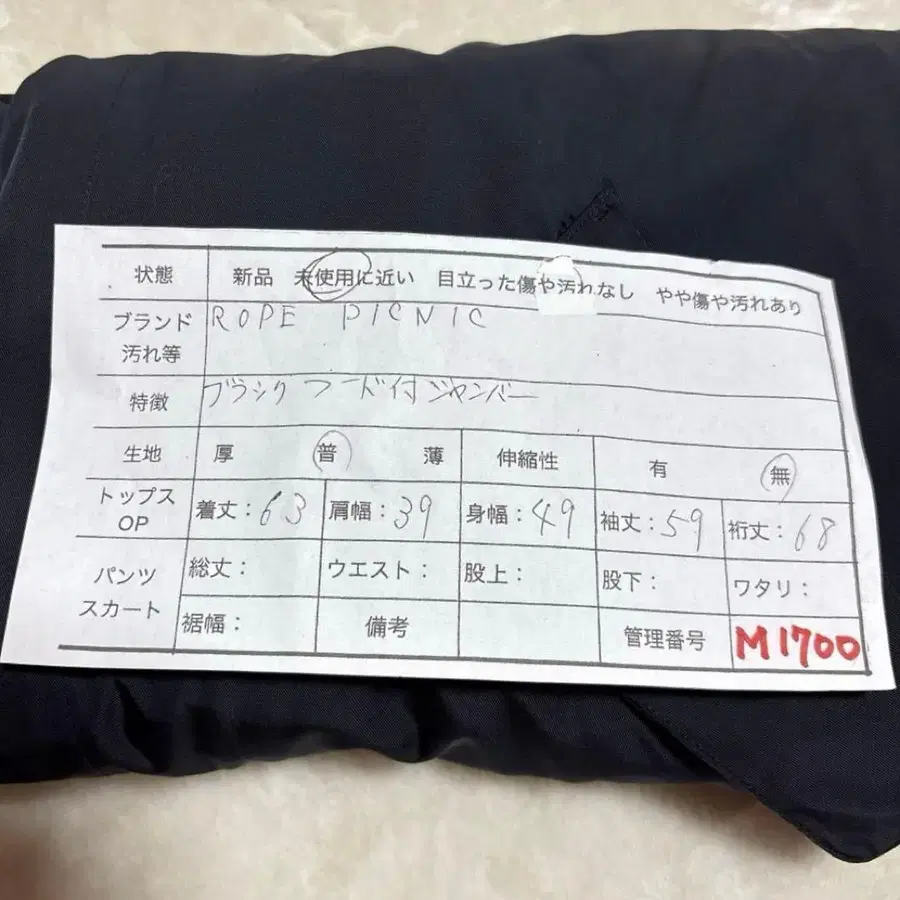 状態 新品 未使用に近い 目立った傷や汚れなし やや傷や汚れあり
ブランド 汚れ等 ROPE PICNIC
特徴 ブラック フード付ジャンバー
生地 厚 普 薄 伸縮性 有 無
トップス OP 着丈：63 肩幅：39 身幅：49 袖丈：59 裄丈：68
パンツ スカート 総丈： ウエスト： 股上： 股下： ワタリ：
裾幅： 備考 管理番号 M1700